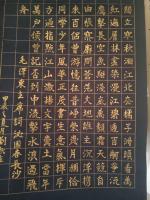 獨立寒秋湘江北去橘子洲頭看萬山
紅遍層林盡染漫江碧透百舸爭流
鷹擊長空魚翔淺底萬類霜天競自
由悵寥廓問蒼茫大地誰主沉浮攜
來百侶曾遊憶往昔崢嶸歲月稠恰
同學少年風華正茂書生意氣揮斥
方遒指點江山激揚文字糞土當年
萬戶侯曾記否到中流擊水浪遏飛
舟 毛澤東主席詞沁園春長沙